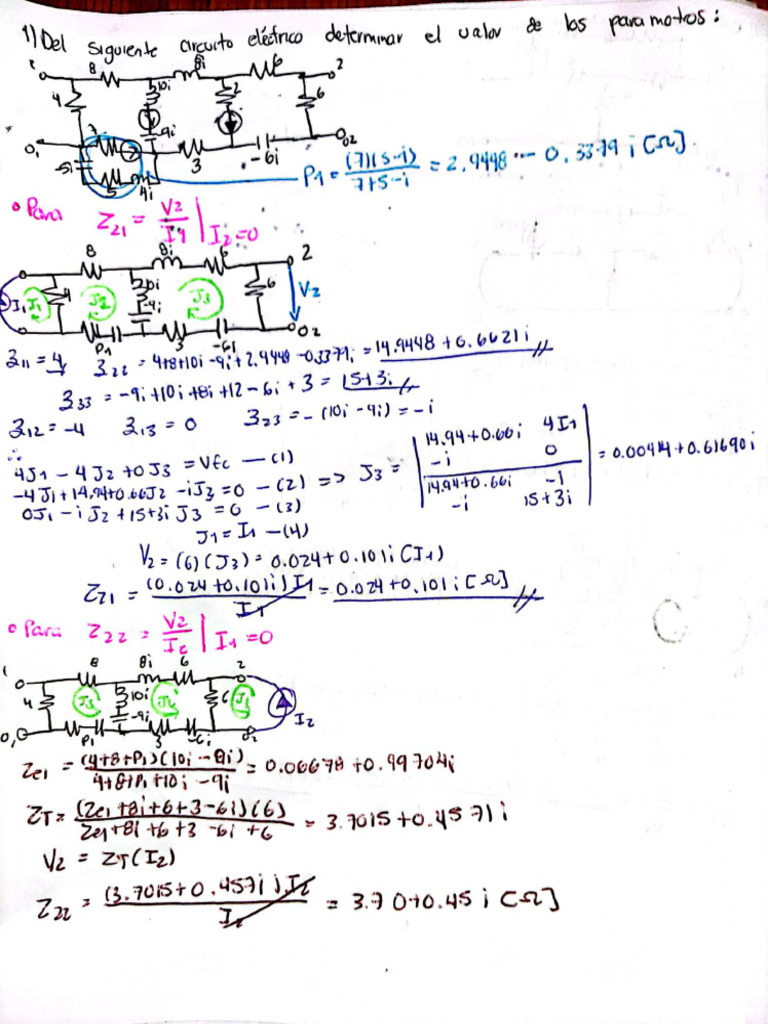 1) Del siguiente circuito eléctrico determinar el valor de los parametros:
1 8 8i 6 2
4 10i 2 6
-9i
0₁ 7 3 -6i 0₂
-5i 5 4i
P1 = (7)(5-i) / 7+5-i = 2.9448 -- 0.3379 i [Ω]
• Para Z₂₁ = V2 / I1 | I₂=0
8 8i 6 2
I₁ J₁ 4 J₂ 10i -9i J₃ 6 V₂
P1 3 -6i 0₂
Z₁₁ = 4 Z₂₂ = 4+8+10i -9i+2.9448 -0.3379i = 14.9448 + 0.6621i
Z₃₃ = -9i+10i+8i+12-6i+3 = 15+3i
Z₁₂ = -4 Z₁₃ = 0 Z₂₃ = -(10i -9i) = -i
∴
4J₁ - 4J₂ +0J₃ = Vfc — (1)
-4J₁+14.94+0.66J₂ -iJ₃ = 0 - (2) => J₃ = | 14.94+0.66i 4I₁ -i 0 | / | 14.94+0.66i -i -i 15+3i | = 0.00414+0.61690i
0J₁ -iJ₂ +15+3i J₃ = 0 - (3)
J₁ = I₁ - (4)
V₂ = (6)(J₃) = 0.024+0.101i (I₁)
Z₂₁ = (0.024+0.101i) I₁ / I₁ = 0.024+0.101i [Ω]
• Para Z₂₂ = V2 / I₂ | I₁ = 0
1 8 8i 6 2
4 J₃ 10i -9i J₂ 6 J₁ I₂
0₁ P1 3 -6i 0₂
Ze₁ = (4+8+P1)(10i - 9i) / 4+8+P1+10i -9i = 0.06678 + 0.99704i
ZT = (Ze₁+8i+6+3-6i)(6) / Ze₁+8i+6+3-6i+6 = 3.7015+0.4571 i
V₂ = ZT(I₂)
Z₂₂ = (3.7015+0.457i) I₂ / I₂ = 3.70+0.45 i [Ω]